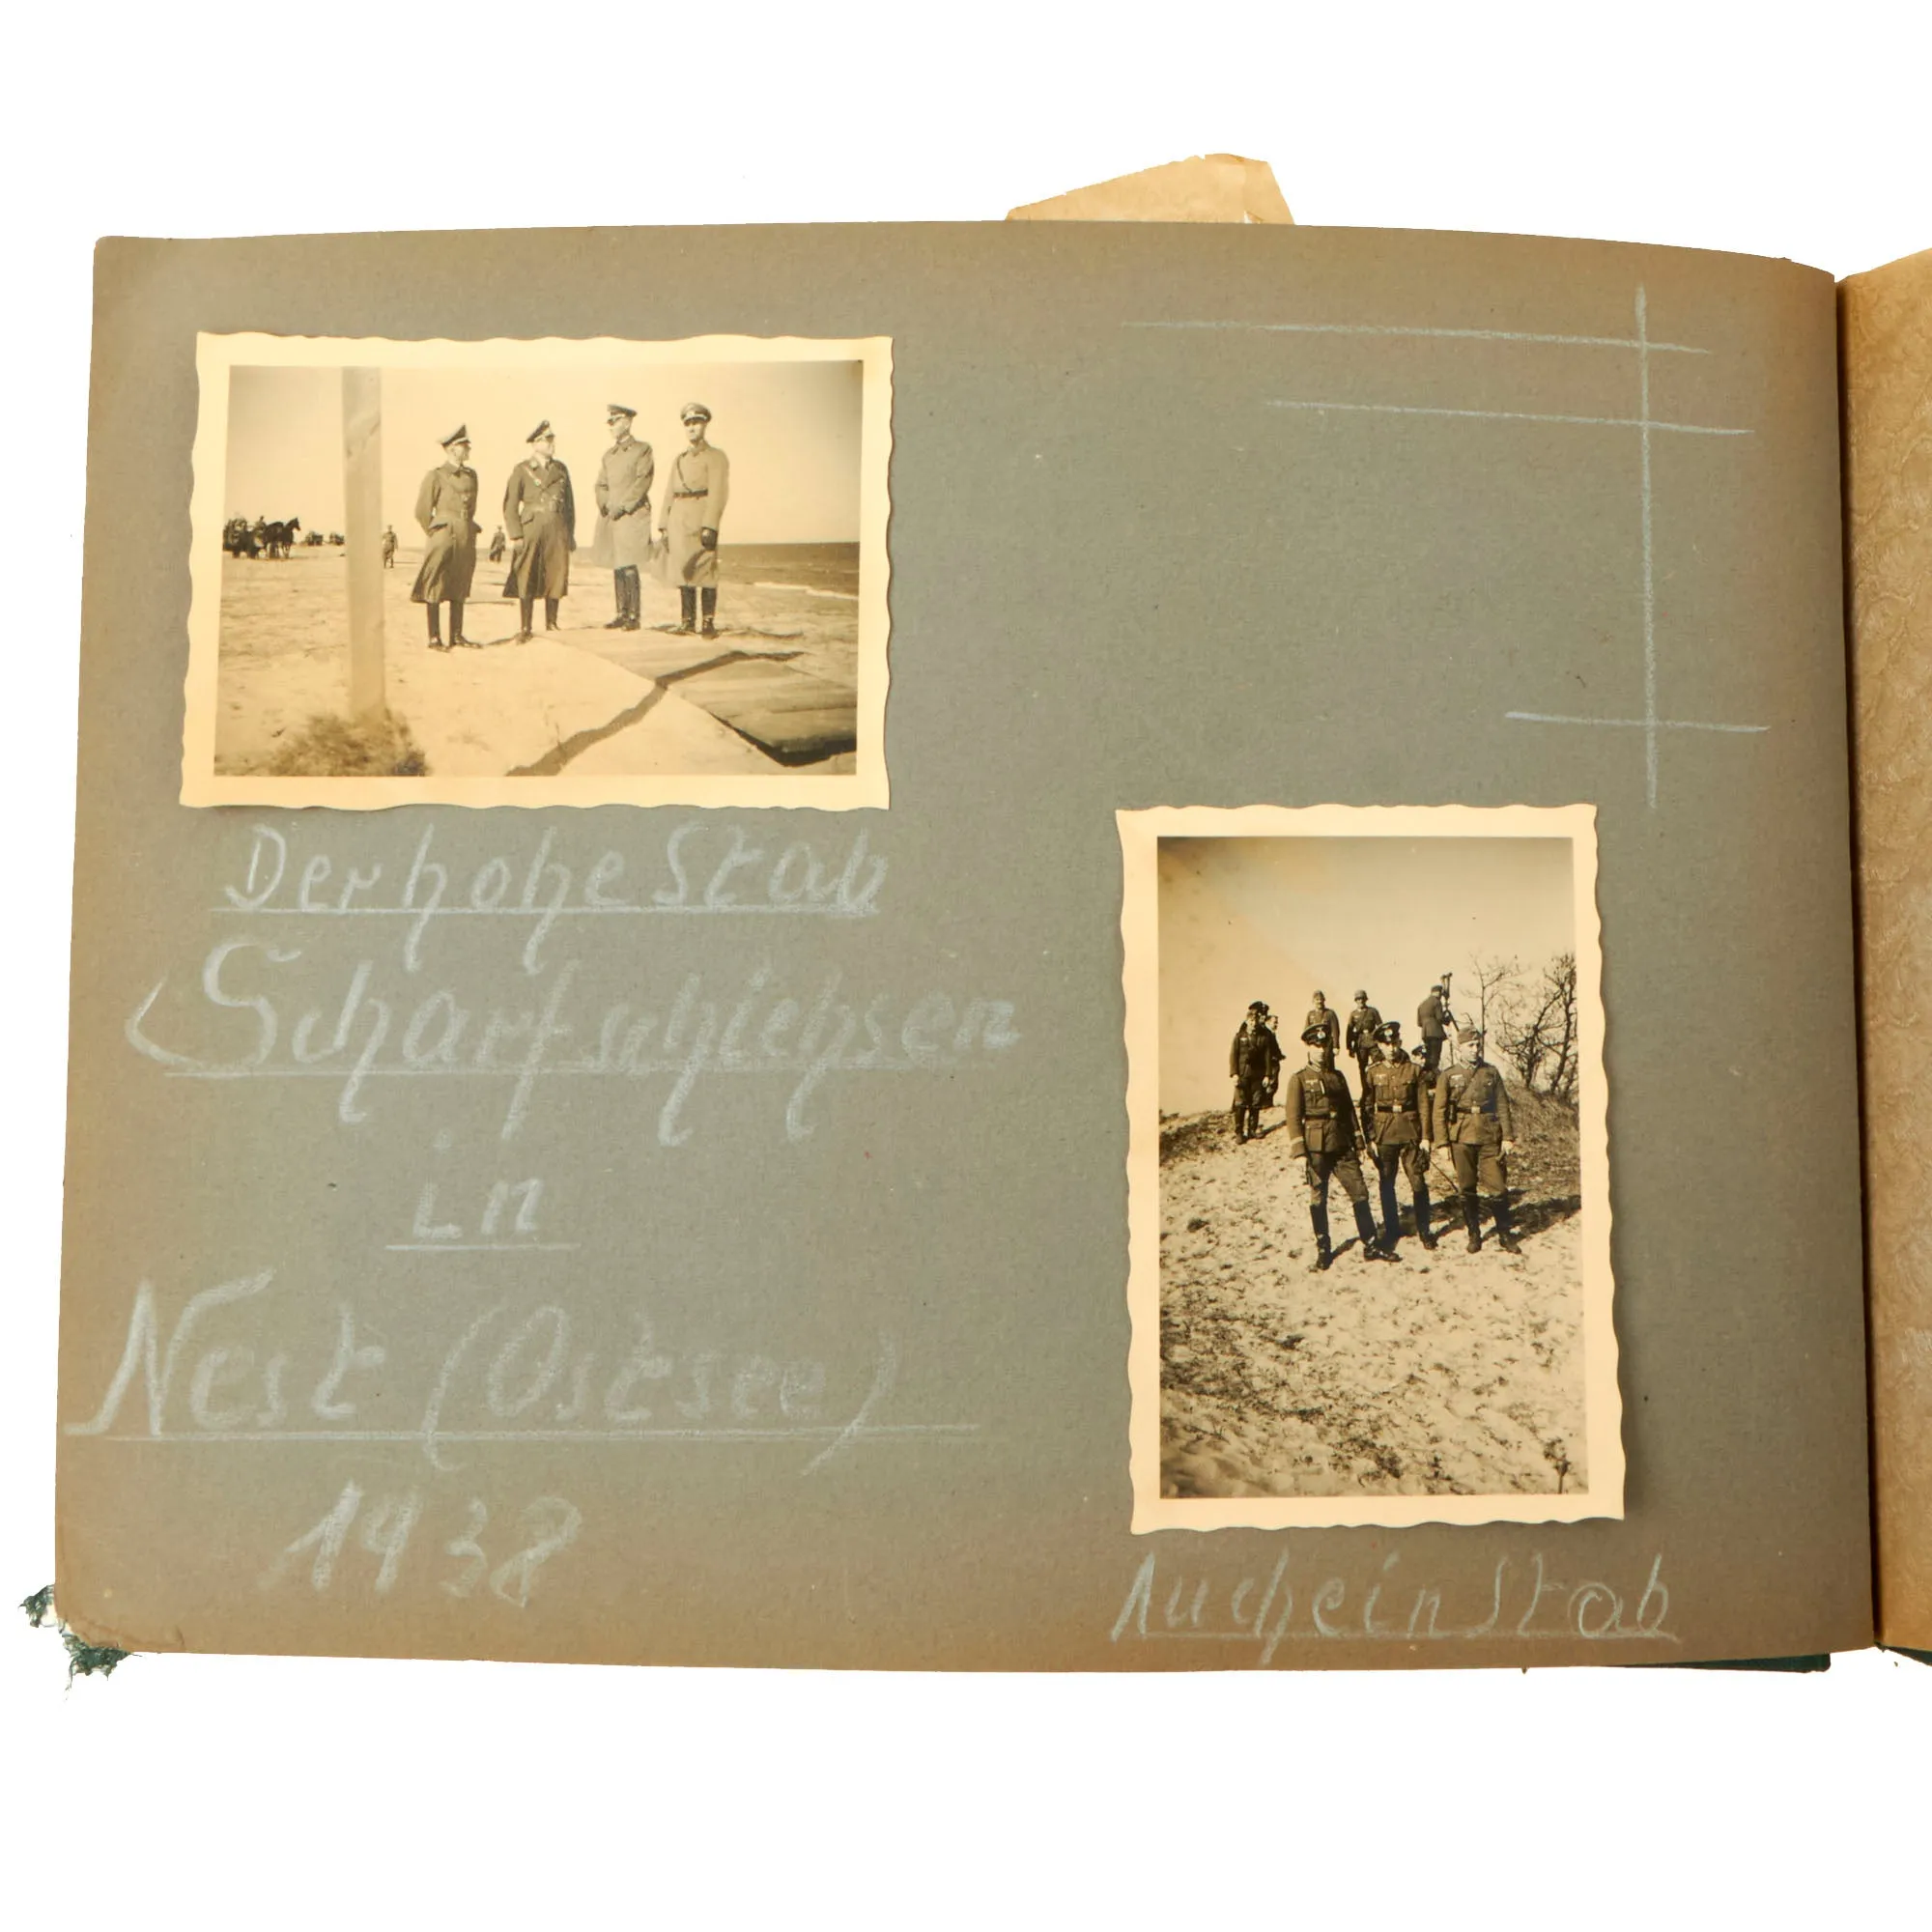 Der hohe Stab
Scharfschiehsen
in
Nest (Ostsee)
1938
Auch ein Stab